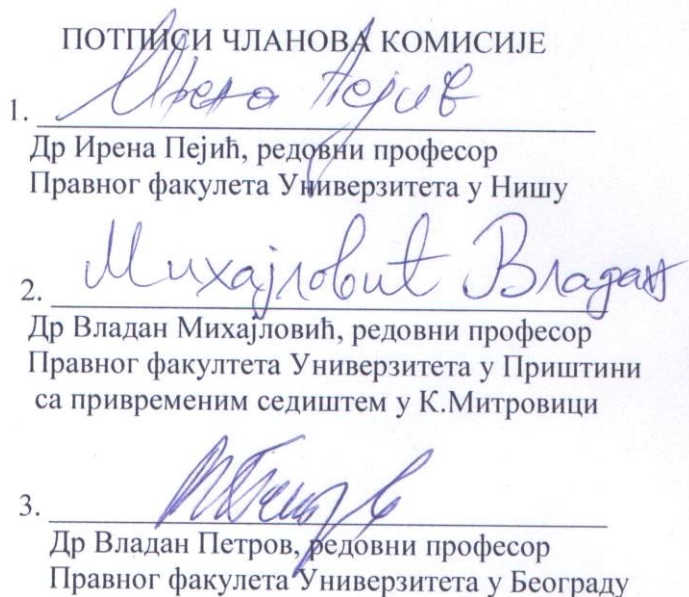 ПОТПИСИ ЧЛАНОВА КОМИСИЈЕ
1. Ирена Пејић
Др Ирена Пејић, редовни професор
Правног факулета Универзитета у Нишу
2. Михајловић Владан
Др Владан Михајловић, редовни професор
Правног факултета Универзитета у Приштини
са привременим седиштем у К.Митровици
3.
Др Владан Петров, редовни професор
Правног факулета Универзитета у Београду